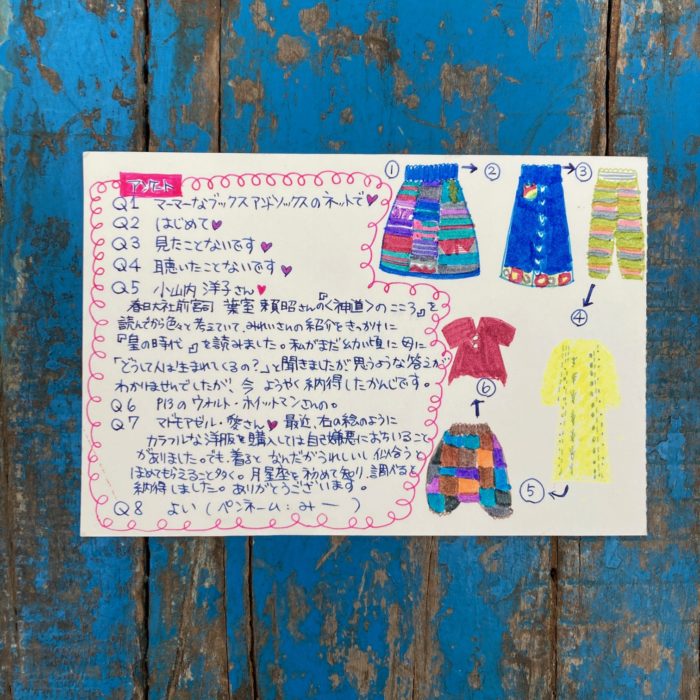 アンケート
Q1 マーマーなブックス アンド ソックスのネットで
Q2 はじめて
Q3 見たことないです
Q4 聴いたことないです
Q5 小山内 洋子さん
春日大社前宮司 葉室 頼昭さんの『〈神道〉のこころ』を
読んでから色々と考えていて、みれいさんの紹介をきっかけに
『皇の時代』を読みました。私がまだ幼い頃に母に
「どうして人は生まれてくるの?」と聞きましたが思うような答えが
わかりませんでしたが、今 ようやく納得したかんじです。
Q6 P13のウォルト・ホイットマンさんの。
Q7 マドモアゼル・愛さん 最近、右の絵のように
カラフルな洋服を購入しては自己嫌悪におちいること
がありました。でも、着ると なんだかうれしいし 似合うと
ほめてもらえること多く。月星座を初めて知り、調べると
納得しました。ありがとうございます。
Q8 よい (ペンネーム:みー)
① → ②
→ ③
④
⑤
⑥